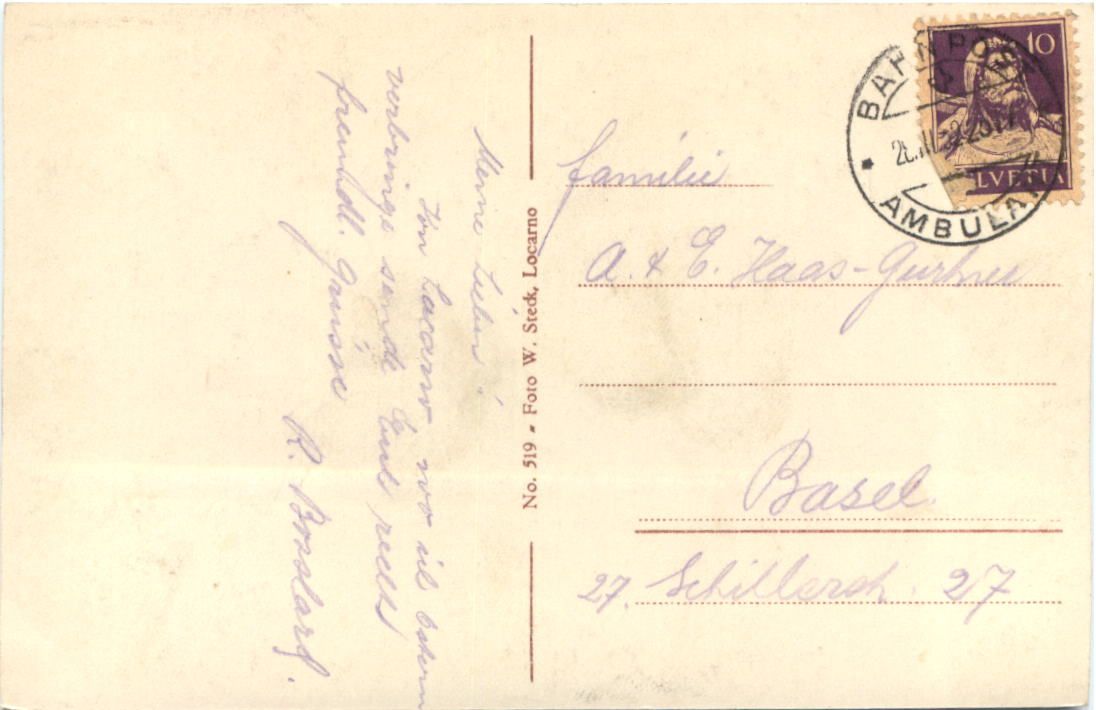 Meine Lieben!
Von Locarno wo ich Ostern
verbringe sende Euch recht
freundl. Grüsse
R. Bosshard.
No. 519 - Foto W. Steck, Locarno
BAHNPOST
AMBULANT
10
HELVETIA
Familie
A. & E. Haas-Gurtner
Basel.
27. Schillerstr. 27